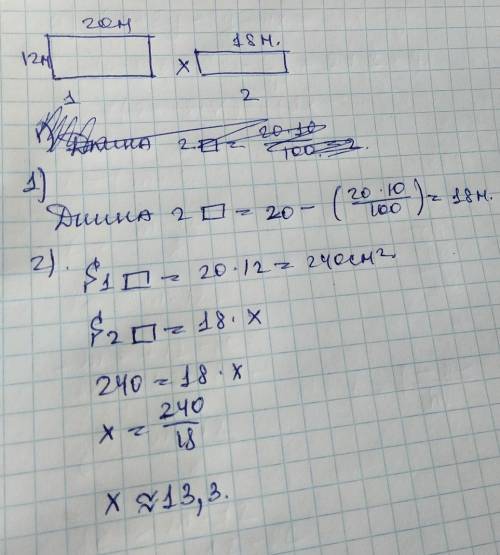 20м
12м
18м.
x
1
2
Длина 2 □ = 20·10/100 = 2.
1)
Длина 2 □ = 20 - (20·10/100) = 18м.
2).
S1 □ = 20·12 = 240см²
S2 □ = 18·x
240 = 18·x
x = 240/18
x ≈ 13,3.